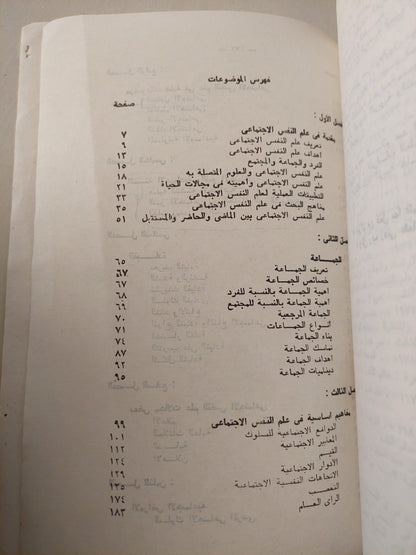 فهرس الموضوعات
صفحة
الأول :
مقدمة فى علم النفس الاجتماعى ٧
تعريف علم النفس الاجتماعى ٩
أهداف علم النفس الاجتماعى ١٣
الفرد والجماعة والمجتمع ١٥
علم النفس الاجتماعى والعلوم المتصلة به ١٨
علم النفس الاجتماعى وأهميته فى مجالات الحياة ٢١
التطبيقات العملية لعلم النفس الاجتماعى ٢٣
مناهج البحث فى علم النفس الاجتماعى ٣٥
علم النفس الاجتماعى بين الماضى والحاضر والمستقبل ٥١
الثانى :
الجماعة ٦٥
تعريف الجماعة ٦٧
خصائص الجماعة ٦٧
أهمية الجماعة بالنسبة للفرد ٦٨
أهمية الجماعة بالنسبة للمجتمع ٦٩
الجماعة المرجعية ٧٠
أنواع الجماعات ٧١
بناء الجماعة ٧٤
تماسك الجماعة ٨٧
أهداف الجماعة ٩٢
ديناميات الجماعة ٩٥
الثالث :
مفاهيم أساسية فى علم النفس الاجتماعى ٩٩
الدوافع الاجتماعية للسلوك ١٠١
المعايير الاجتماعية ١١٢
القيم ١٢٤
الأدوار الاجتماعية ١٢٩
الاتجاهات النفسية الاجتماعية ١٣٥
التعصب ١٧٤
الرأى العام ١٨٣